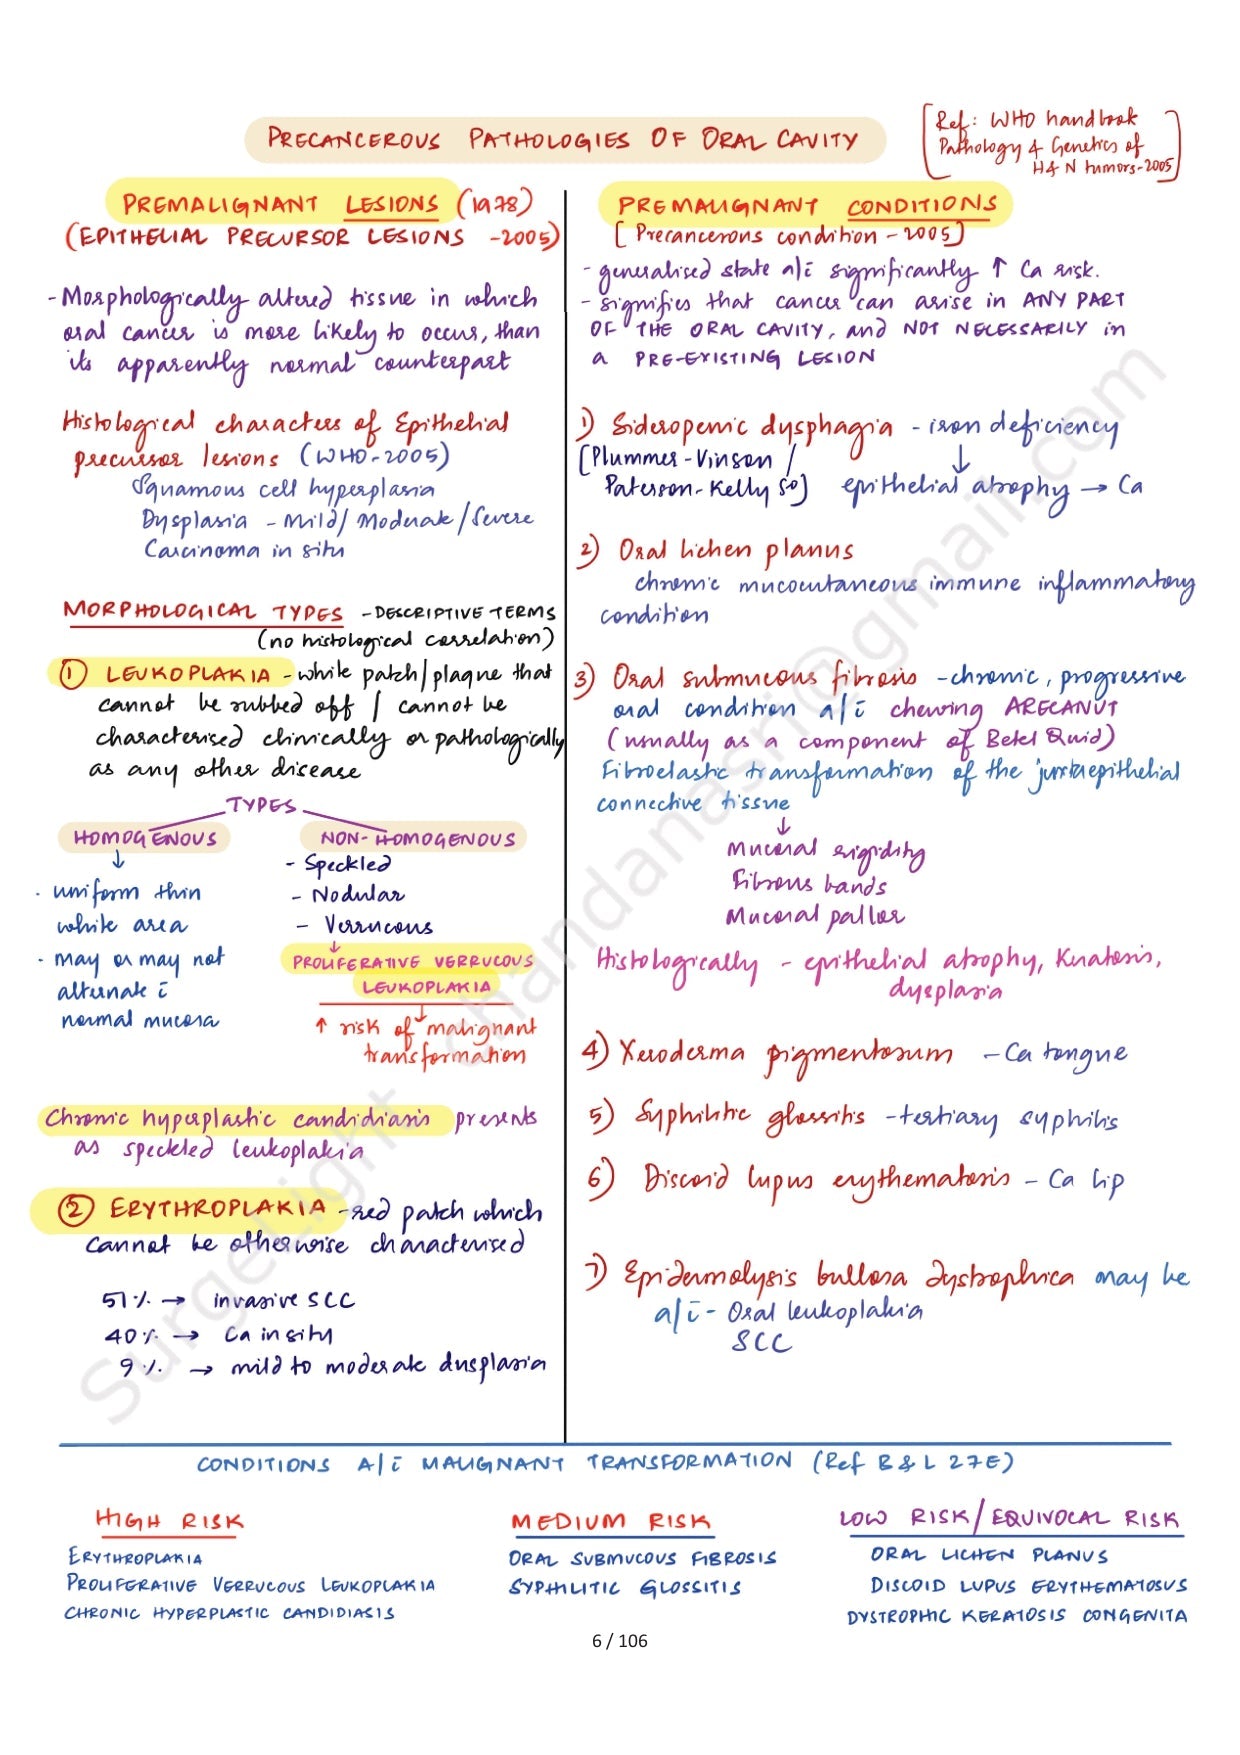 PRECANCEROUS PATHOLOGIES OF ORAL CAVITY
[Ref: WHO handbook
Pathology & Genetics of
H & N tumors-2005]
PREMALIGNANT LESIONS (1978)
(EPITHELIAL PRECURSOR LESIONS -2005)
- Morphologically altered tissue in which
oral cancer is more likely to occur, than
its apparently normal counterpart
Histological characters of Epithelial
precursor lesions (WHO-2005)
Squamous cell hyperplasia
Dysplasia - Mild/ Moderate/Severe
Carcinoma in situ
MORPHOLOGICAL TYPES - DESCRIPTIVE TERMS
(no histological correlation)
① LEUKOPLAKIA - white patch/plaque that
cannot be rubbed off / cannot be
characterised clinically or pathologically
as any other disease
TYPES
HOMOGENOUS
↓
· uniform thin
white area
· may or may not
alternate c̄
normal mucosa
NON-HOMOGENOUS
- Speckled
- Nodular
- Verrucous
↓
PROLIFERATIVE VERRUCOUS
LEUKOPLAKIA
↓
↑ risk of malignant
transformation
Chronic hyperplastic candidiasis presents
as speckled leukoplakia
② ERYTHROPLAKIA - red patch which
cannot be otherwise characterised
51% → invasive SCC
40% → Ca in situ
9% → mild to moderate dysplasia
PREMALIGNANT CONDITIONS
[Precancerous condition - 2005]
- generalised state a/c̄ significantly ↑ Ca risk.
- signifies that cancer can arise in ANY PART
OF THE ORAL CAVITY, and NOT NECESSARILY in
a PRE-EXISTING LESION
1) Sideropenic dysphagia - iron deficiency
↓
[Plummer-Vinson /
Paterson-Kelly So] epithelial atrophy → Ca
2) Oral lichen planus
chronic mucocutaneous immune inflammatory
condition
3) Oral submucous fibrosis - chronic, progressive
oral condition a/c̄ chewing ARECANUT
(usually as a component of Betel Quid)
Fibroelastic transformation of the juxtaepithelial
connective tissue
↓
Mucosal rigidity
Fibrous bands
Mucosal pallor
Histologically - epithelial atrophy, Keratosis,
dysplasia
4) Xeroderma pigmentosum - Ca tongue
5) Syphilitic glossitis - tertiary syphilis
6) Discoid lupus erythematosis - Ca lip
7) Epidermolysis bullosa dystrophica may be
a/c̄ - Oral leukoplakia
SCC
CONDITIONS A/c̄ MALIGNANT TRANSFORMATION (Ref B & L 27E)
HIGH RISK
ERYTHROPLAKIA
PROLIFERATIVE VERRUCOUS LEUKOPLAKIA
CHRONIC HYPERPLASTIC CANDIDIASIS
MEDIUM RISK
ORAL SUBMUCOUS FIBROSIS
SYPHILITIC GLOSSITIS
LOW RISK/EQUIVOCAL RISK
ORAL LICHEN PLANUS
DISCOID LUPUS ERYTHEMATOSUS
DYSTROPHIC KERATOSIS CONGENITA
6 / 106